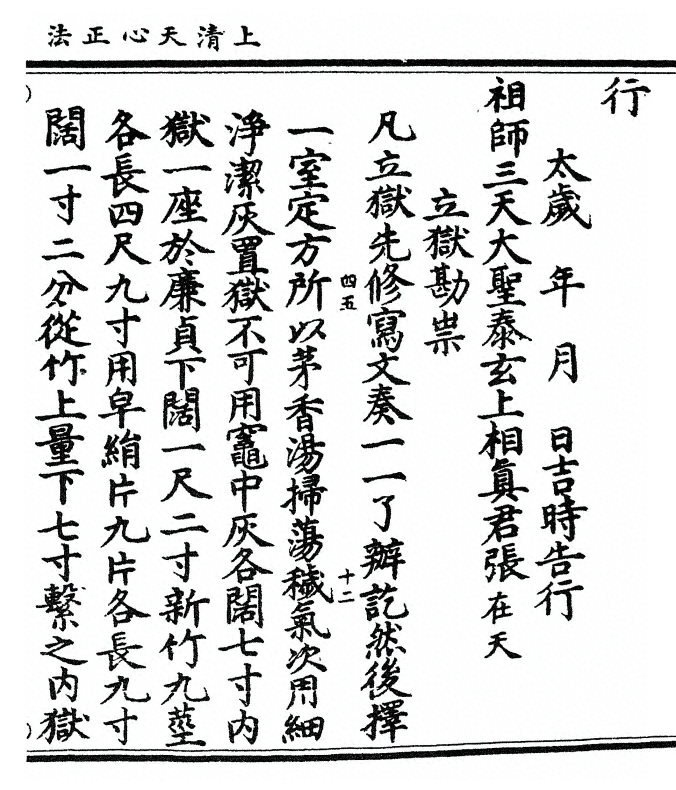 上清天心正法
行
太歲 年 月 日吉時告行
祖師三天大聖泰玄上相眞君張在天
立獄勘祟
凡立獄先修寫文奏一一了辦訖然後擇
一室定方所以茅香湯掃蕩穢氣次用細
四五
十二
淨潔灰置獄不可用竈中灰各闊七寸內
獄一座於廉貞下闊一尺二寸新竹九莖
各長四尺九寸用皁絹片九片各長九寸
闊一寸二分從竹上量下七寸繫之內獄